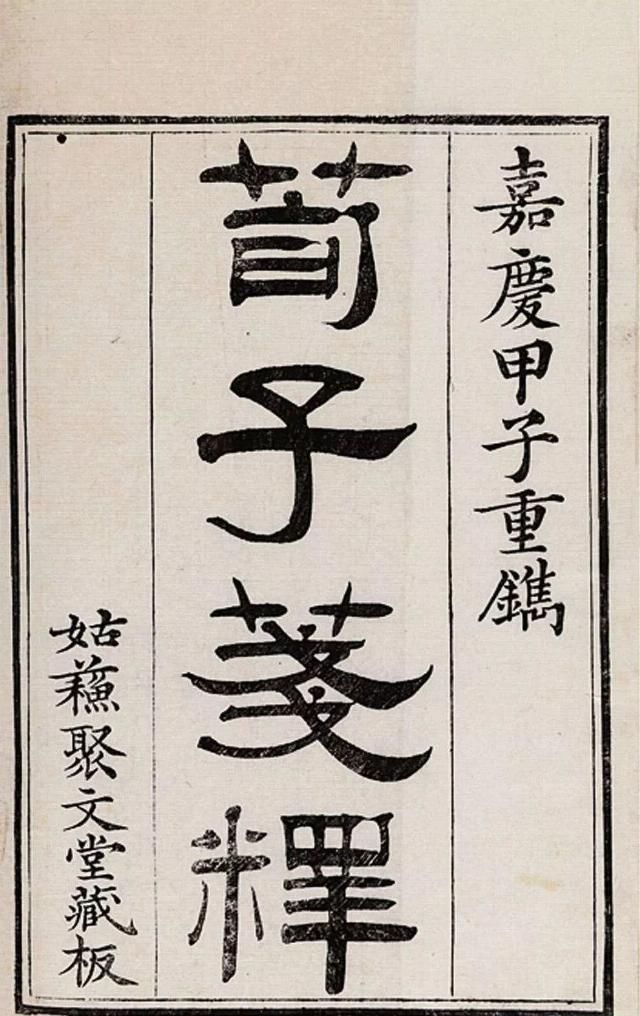 嘉慶甲子重鐫
荀子箋釋
姑蘇聚文堂藏板